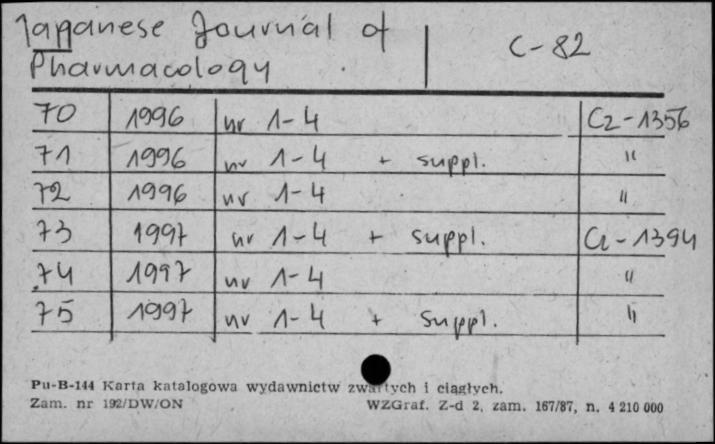 Japanese Journal of
Pharmacology
C-82
70 1996 nr 1-4 Cz-1356
71 1996 nr 1-4 + suppl. "
72 1996 nr 1-4 "
73 1997 nr 1-4 + suppl. Cz-1394
74 1997 nr 1-4 "
75 1997 nr 1-4 + suppl. "
Pu-B-144 Karta katalogowa wydawnictw zwartych i ciągłych.
Zam. nr 192/DW/ON WZGraf. Z-d 2, zam. 167/87, n. 4 210 000